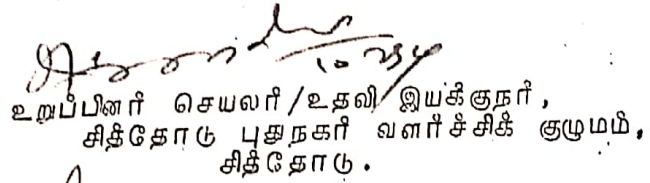 உறுப்பினர் செயலர்/உதவி இயக்குநர்,
சித்தோடு புதுநகர் வளர்ச்சிக் குழுமம்,
சித்தோடு.